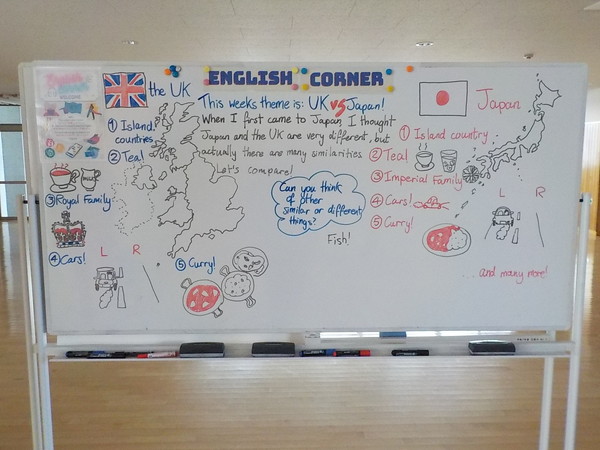 ENGLISH CORNER
the UK
This weeks theme is: UK vs Japan!
When I first came to Japan I thought
Japan and the UK are very different, but
actually there are many similarities
Let's compare!
① Island countries
② Tea!
MILK
③ Royal Family
④ Cars!
L R
⑤ Curry!
Can you think
of other
similar or different
things?
Fish!
Japan
① Island country
② Tea!
③ Imperial Family
④ Cars!
⑤ Curry!
L R
...and many more!